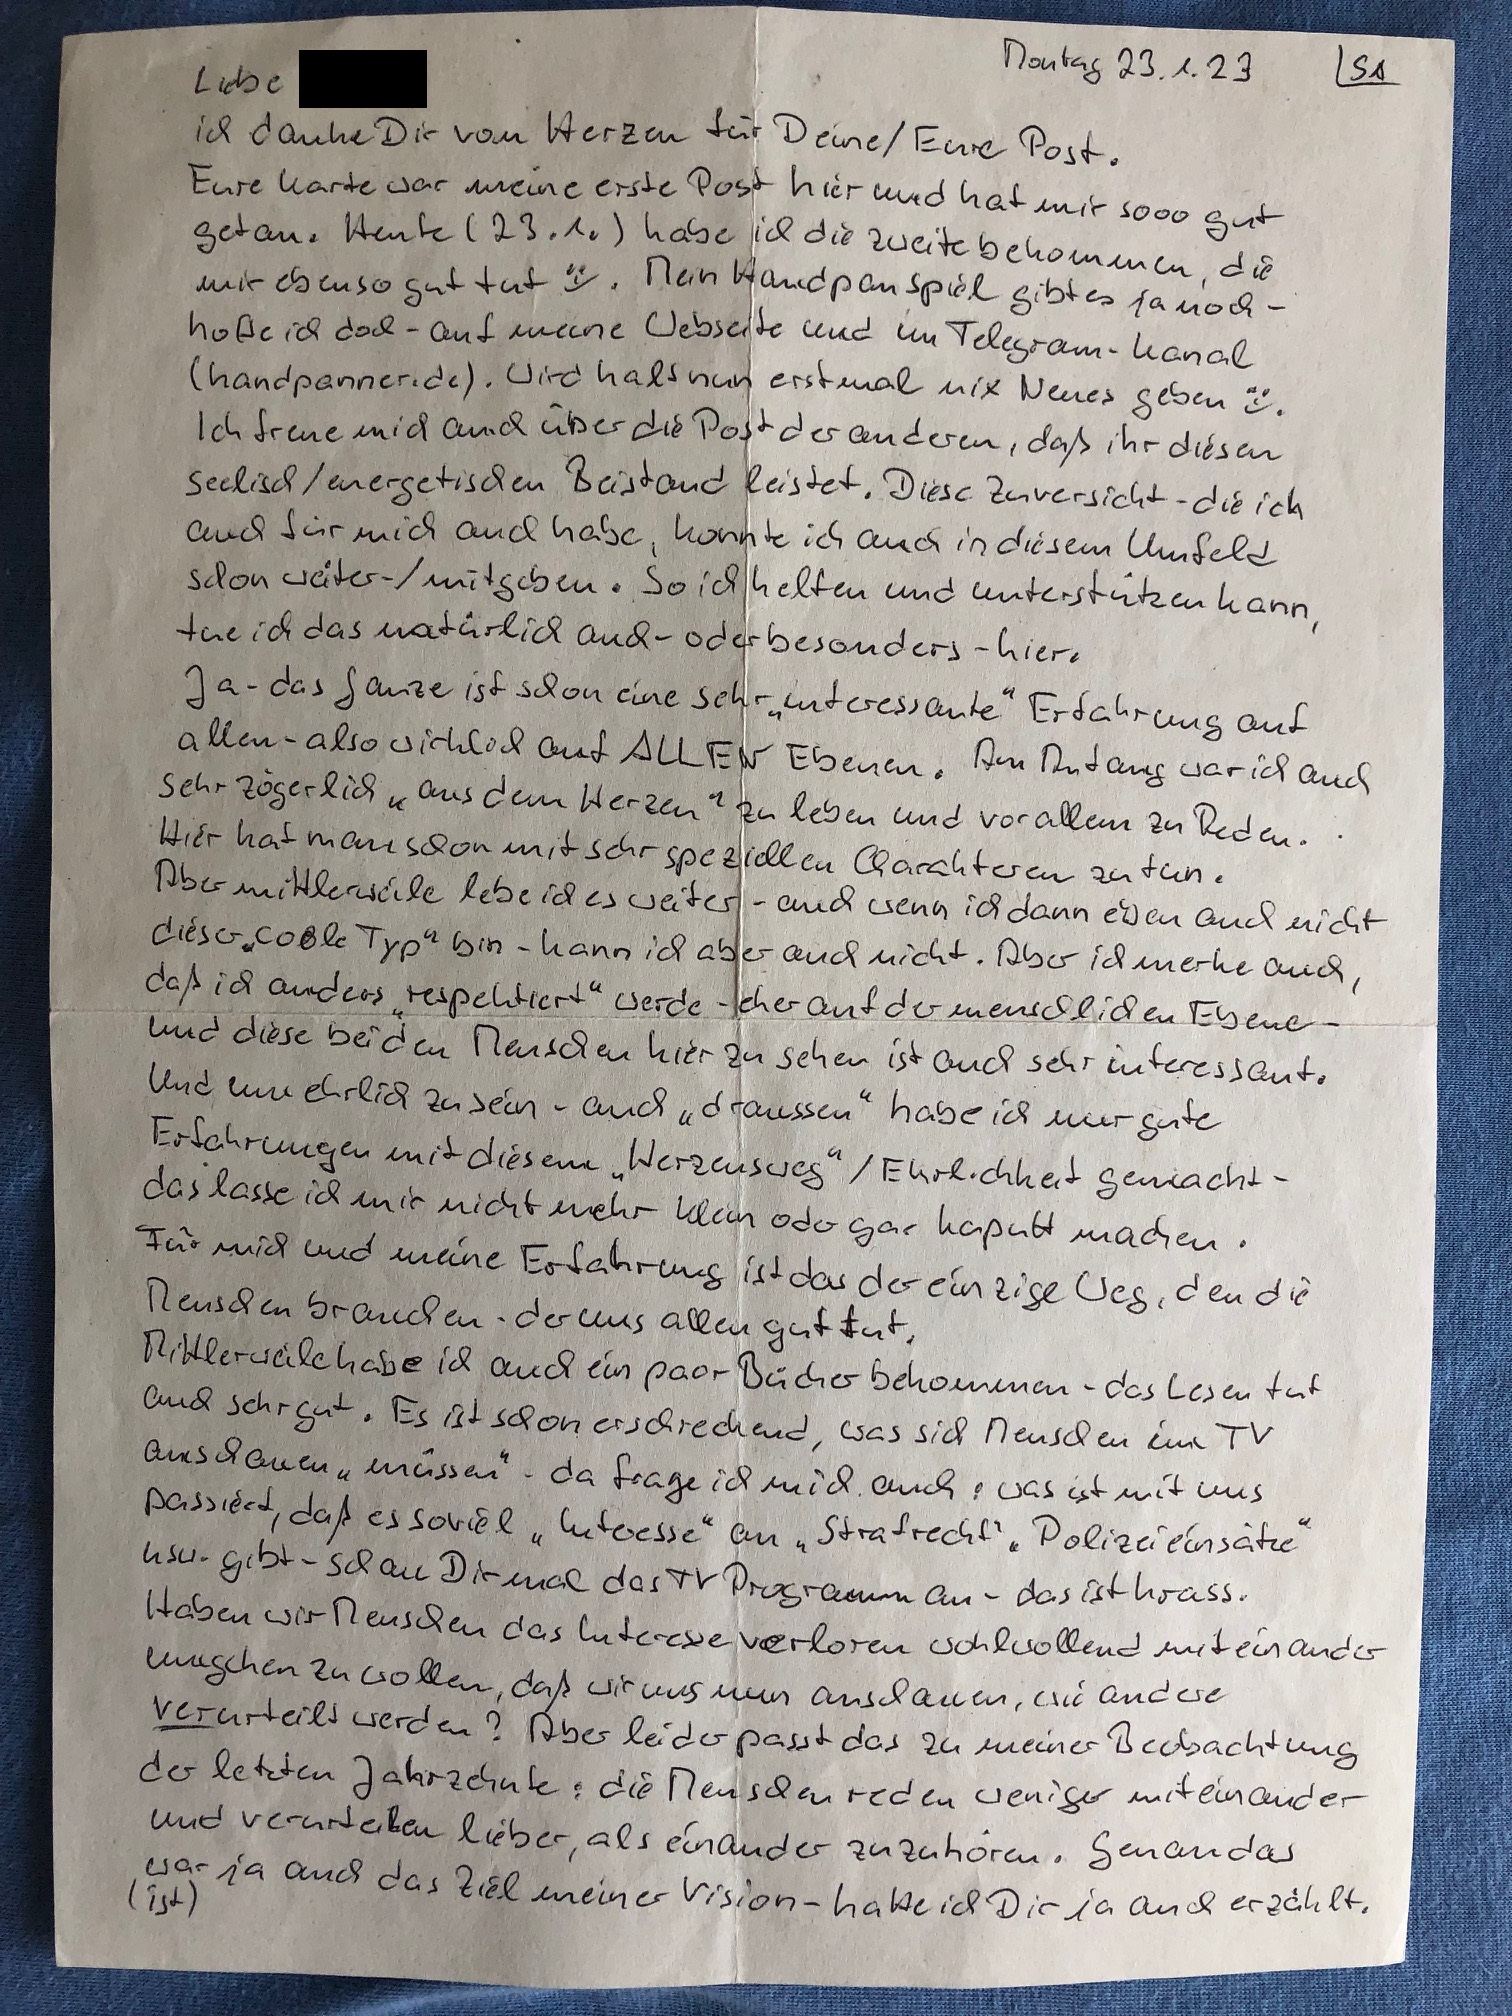 Montag 23.1.23
Liebe
ich danke Dir von Herzen für Deine/Eure Post.
Eure Karte war meine erste Post hier und hat mir sooo gut
getan. Heute (23.1.) habe ich die zweite bekommen, die
mir ebenso gut tut ☺. Mein Handpanspiel gibt es ja noch -
hoffe ich doch - auf meine Webseite und im Telegram-Kanal
(handpanner.de). Wird halt nun erstmal nix Neues geben ☺.
Ich freue mich auch über die Post der anderen, daß ihr diesen
seelisch/energetischen Beistand leistet. Diese Zuversicht - die ich
auch für mich auch habe, konnte ich auch in diesem Umfeld
schon weiter-/mitgeben. So ich helfen und unterstützen kann,
tue ich das natürlich auch - oder besonders - hier.
Ja - das Ganze ist schon eine sehr „interessante“ Erfahrung auf
allen - also wirklich auf ALLEN Ebenen. Am Anfang war ich auch
sehr zögerlich „aus dem Herzen“ zu leben und vor allem zu Reden.
Hier hat man schon mit sehr speziellen Charakteren zu tun.
Aber mittlerweile lebe ich es weiter - auch wenn ich dann eben auch nicht
dieser „coole Typ“ bin - kann ich aber auch nicht. Aber ich merke auch,
daß ich anders „respektiert“ werde - eher auf der menschlichen Ebene -
und diese bei den Menschen hier zu sehen ist auch sehr interessant.
Und um ehrlich zu sein - auch „draussen“ habe ich nur gute
Erfahrungen mit diesem „Herzensweg“/Ehrlichkeit gemacht -
das lasse ich mir nicht mehr klein oder gar kaputt machen.
Für mich und meine Erfahrung ist das der einzige Weg, den die
Menschen brauchen - der uns allen gut tut.
Mittlerweile habe ich auch ein paar Bücher bekommen - das Lesen tut
auch sehr gut. Es ist schon erschreckend, was sich Menschen im TV
anschauen „müssen“ - da frage ich mich auch: was ist mit uns
passiert, daß es soviel „Interesse“ an „Strafrecht“, „Polizeieinsätze“
usw. gibt - schau Dir mal das TV Programm an - das ist krass.
Haben wir Menschen das Interesse verloren wohlwollend miteinander
umgehen zu wollen, daß wir uns nun anschauen, wie andere
verurteilt werden? Aber leider passt das zu meiner Beobachtung
der letzten Jahrzehnte: die Menschen reden weniger miteinander
und verurteilen lieber, als einander zuzuhören. Genau das
war ja auch das Ziel meiner Vision - hatte ich Dir ja auch erzählt.
(ist)